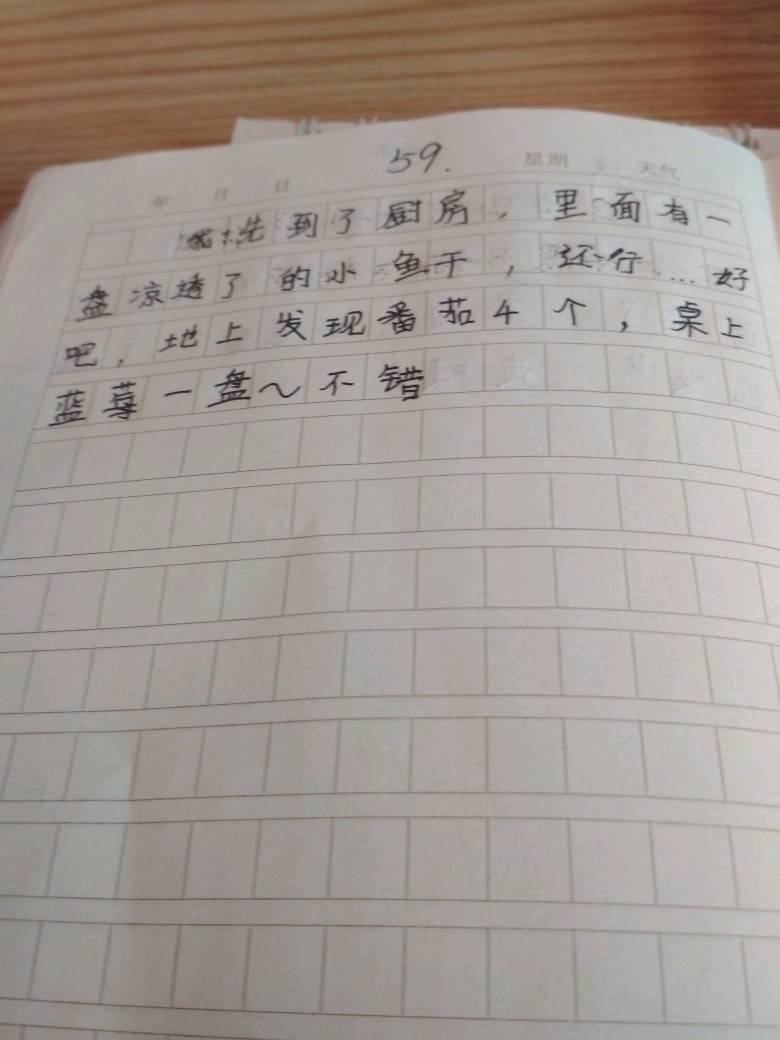 59.
年 月 日 星期 天气
我先到了厨房，里面有一
盘凉透了的小鱼干，还行…好
吧，地上发现番茄4个，桌上
蓝莓一盘～不错